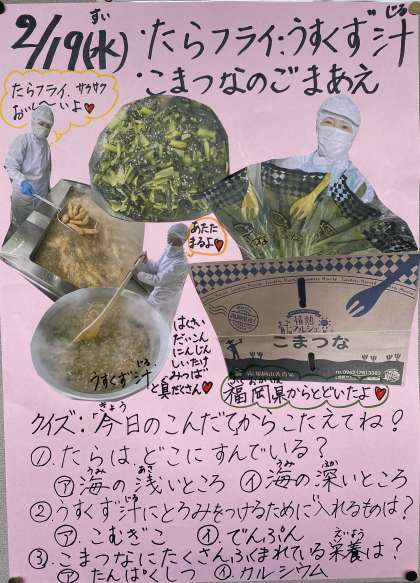 2/19(水) ・たらフライ・うすくず汁
すい じる
・こまつなのごまあえ
たらフライ、サクサク
おいし〜いよ♥
あたた
まるよ♥
はくさい
だいこん
にんじん
しいたけ
みつば
と具だくさん♥
うすくず汁
じる
こまつな
福岡県からとどいたよ♥
クイズ:今日のこんだてからこたえてね!
きょう
①.たらは、どこにすんでいる?
㋐海の浅いところ ㋑海の深いところ
うみ あさ うみ ふか
②.うすくず汁にとろみをつけるために入れるものは?
じる
㋐こむぎこ ㋑でんぷん
③.こまつなにたくさんふくまれている栄養は?
えいよう
㋐たんぱくしつ ㋑カルシウム